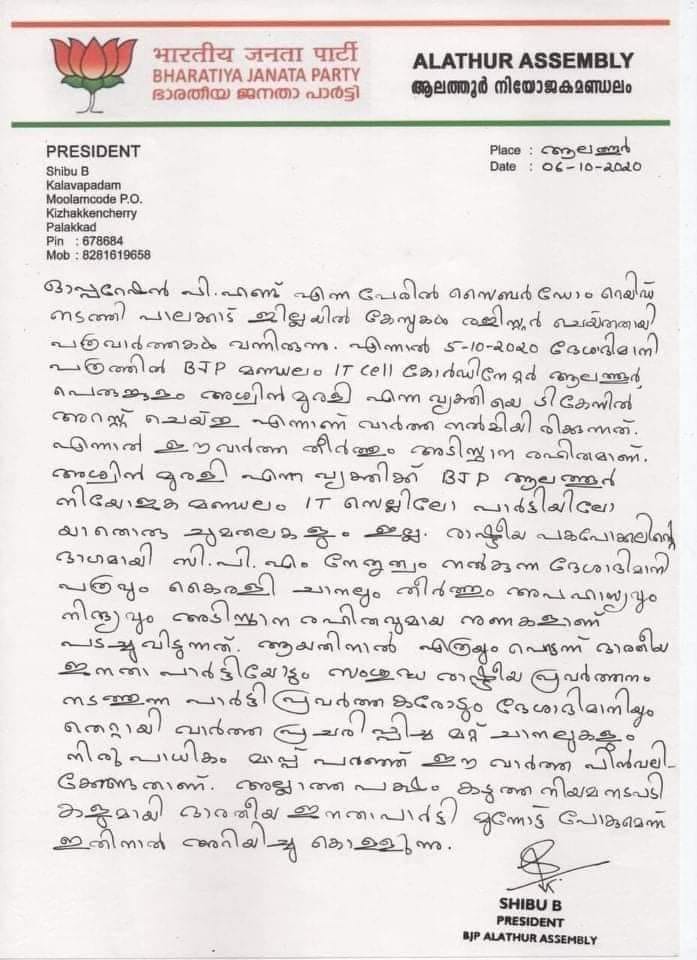 भारतीय जनता पार्टी
BHARATIYA JANATA PARTY
ഭാരതീയ ജനതാ പാർട്ടി
ALATHUR ASSEMBLY
ആലത്തൂർ നിയോജകമണ്ഡലം
PRESIDENT
Shibu B
Kalavapadam
Moolamcode P.O.
Kizhakkencherry
Palakkad
Pin : 678684
Mob : 8281619658
Place : ആലത്തൂർ
Date : 06-10-2020
ഓപ്പറേഷൻ പി.ഹണ്ട് എന്ന പേരിൽ സൈബർഡോം റെയ്ഡ്
നടത്തി പാലക്കാട് ജില്ലയിൽ കേസുകൾ രജിസ്റ്റർ ചെയ്തതായി
പത്രവാർത്തകൾ വന്നിരുന്നു. എന്നാൽ 5-10-2020 ദേശാഭിമാനി
പത്രത്തിൽ BJP മണ്ഡലം IT cell കോർഡിനേറ്റർ ആലത്തൂർ
പെരുങ്കുളം അശ്വിൻ മുരളി എന്ന വ്യക്തിയെ ടി കേസിൽ
അറസ്റ്റ് ചെയ്തു എന്നാണ് വാർത്ത നൽകിയിരിക്കുന്നത്.
എന്നാൽ ഈ വാർത്ത തീർത്തും അടിസ്ഥാന രഹിതമാണ്.
അശ്വിൻ മുരളി എന്ന വ്യക്തിക്ക് BJP ആലത്തൂർ
നിയോജക മണ്ഡലം IT സെല്ലിലോ പാർട്ടിയിലോ
യാതൊരു ചുമതലകളും ഇല്ല. രാഷ്ട്രീയ പകപോക്കലിന്റെ
ഭാഗമായി സി.പി.എം നേതൃത്വം നൽകുന്ന ദേശാഭിമാനി
പത്രവും കൈരളി ചാനലും തീർത്തും അപഹാസ്യവും
നിന്ദ്യവും അടിസ്ഥാന രഹിതവുമായ നുണകളാണ്
പടച്ചുവിടുന്നത്. ആയതിനാൽ എത്രയും പെട്ടന്ന് ഭാരതീയ
ജനതാ പാർട്ടിയോടും സംശുദ്ധ രാഷ്ട്രീയ പ്രവർത്തനം
നടത്തുന്ന പാർട്ടി പ്രവർത്തകരോടും ദേശാഭിമാനിയും
തെറ്റായി വാർത്ത പ്രചരിപ്പിച്ച മറ്റ് ചാനലുകളും
നിരുപാധികം മാപ്പ് പറഞ്ഞ് ഈ വാർത്ത പിൻവലി-
ക്കേണ്ടതാണ്. അല്ലാത്ത പക്ഷം കടുത്ത നിയമ നടപടി
കളുമായി ഭാരതീയ ജനതാപാർട്ടി മുന്നോട്ട് പോകുമെന്ന്
ഇതിനാൽ അറിയിച്ചു കൊള്ളുന്നു.
SHIBU B
PRESIDENT
BJP ALATHUR ASSEMBLY